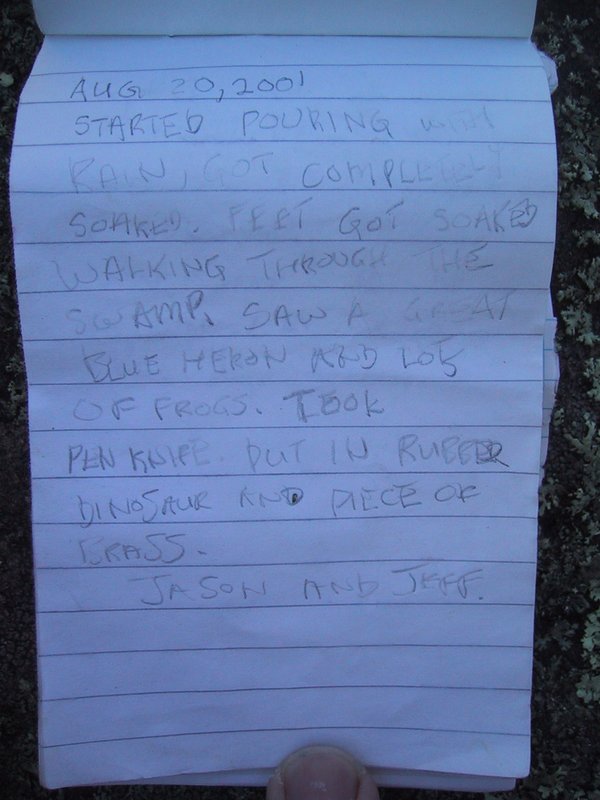 AUG 20, 2001
STARTED POURING WITH
RAIN, GOT COMPLETELY
SOAKED. FEET GOT SOAKED
WALKING THROUGH THE
SWAMP. SAW A GREAT
BLUE HERON AND LOTS
OF FROGS. TOOK
PEN KNIFE PUT IN RUBBER
DINOSAUR AND PIECE OF
BRASS.
JASON AND JEFF.